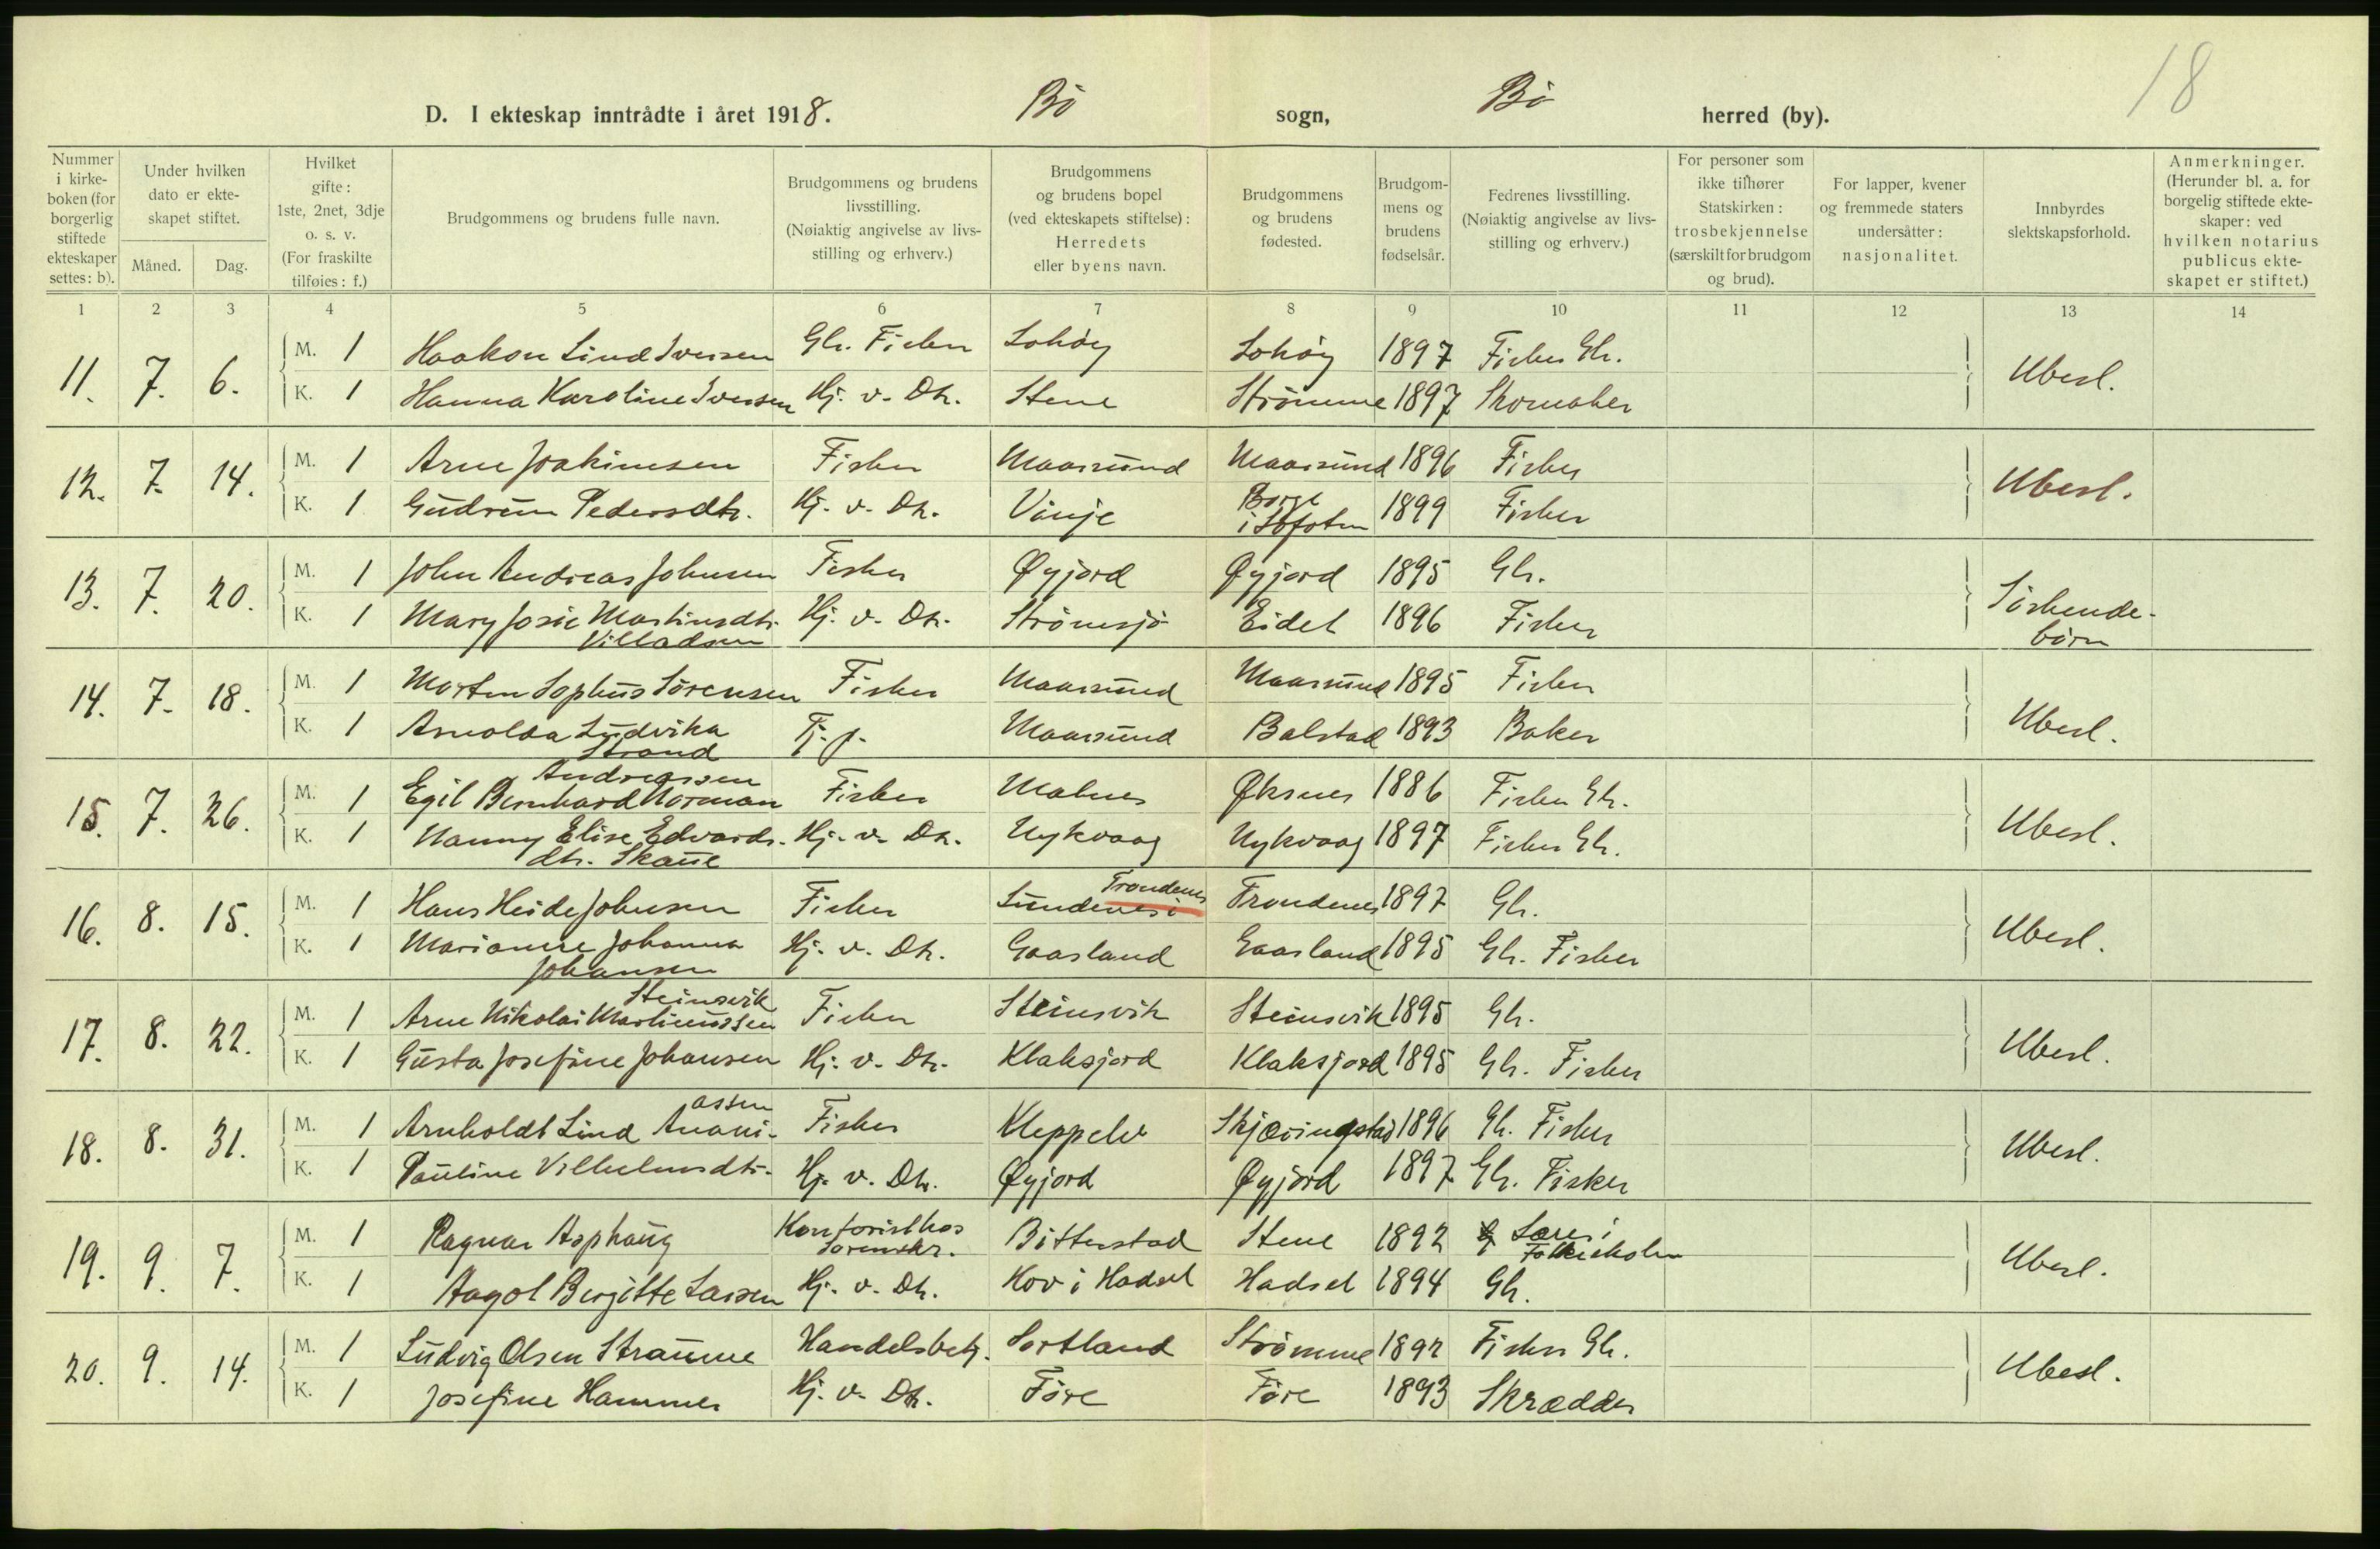 18
D. I ekteskap inntrådte i året 1918. Bö sogn, Bö herred (by).
Nummer i kirkeboken (for borgerlig stiftede ekteskaper settes: b).
Under hvilken dato er ekteskapet stiftet.
Måned. Dag.
Hvilket gifte: 1ste, 2net, 3dje o. s. v. (For fraskilte tilføies: f.)
Brudgommens og brudens fulle navn.
Brudgommens og brudens livsstilling. (Nøiaktig angivelse av livsstilling og erhverv.)
Brudgommens og brudens bopel (ved ekteskapets stiftelse): Herredets eller byens navn.
Brudgommens og brudens fødested.
Brudgommens og brudens fødselsår.
Fedrenes livsstilling. (Nøiaktig angivelse av livsstilling og erhverv.)
For personer som ikke tilhører Statskirken: trosbekjennelse (særskilt for brudgom og brud).
For lapper, kvener og fremmede staters undersåtter: nasjonalitet.
Innbyrdes slektskapsforhold.
Anmerkninger. (Herunder bl. a. for borgelig stiftede ekteskaper: ved hvilken notarius publicus ekteskapet er stiftet.)
1 2 3 4 5 6 7 8 9 10 11 12 13 14
11. 7. 6. M. 1 Haakon Lind Iversen Gbr. Fisker 1897 Fisker Gbr. Ubesl.
K. 1 Hanna Karoline Iversen Hj. v. Dtr. Stene Strömme 1897 Skomaker
12. 7. 14. M. 1 Arne Joakimsen Fisker Maarsund Maarsund 1896 Fisker Ubesl.
K. 1 Gudrun Pedersdtr. Hj. v. Dtr. Vinje Borge i Lofoten 1899 Fisker
13. 7. 20. M. 1 John Andreas Johnsen Fisker Øyjord Øyjord 1895 Gbr. Söskende-
börn
K. 1 Mary Josie Martinsdtr. Villadsen Hj. v. Dtr. Strömsjö Eidet 1896 Fisker
14. 7. 18. M. 1 Morten Sophus Sörensen Fisker Maarsund Maarsund 1895 Fisker Ubesl.
K. 1 Arnolda Ludvika Strand Tj. p. Maarsund Balstad 1893 Baker
15. 7. 26. M. 1 Egil Bernhard Norman Andreassen Fisker Malnes Øksnes 1886 Fisker Gbr. Ubesl.
K. 1 Nanny Elise Edvards- dtr. Skaue Hj. v. Dtr. Nykvaag Nykvaag 1897 Fisker Gbr.
16. 8. 15. M. 1 Hans Heide Johnsen Fisker Sundenes i Trondenes Trondenes 1897 Gbr. Ubesl.
K. 1 Marianne Johanna Johansen Hj. v. Dtr. Gaasland Gaasland 1895 Gbr. Fisker
17. 8. 22. M. 1 Arne Nikolai Martinussen Steinsvik Fisker Steinsvik Steinsvik 1895 Gbr. Ubesl.
K. 1 Gusta Josefine Johansen Hj. v. Dtr. Klaksjord Klaksjord 1895 Gbr. Fisker
18. 8. 31. M. 1 Arnholdt Lind Anani- assen Fisker Kleppelv Skjæringstad 1896 Gbr. Fisker Ubesl.
K. 1 Pauline Vilhelmsdtr. Hj. v. Dtr. Øyjord Øyjord 1897 Gbr. Fisker
19. 9. 7. M. 1 Ragnar Asphaug Kontorist hos Sorenskr. Bitterstad Stene 1892 Lærer i Folkeskolen Ubesl.
K. 1 Aagot Bergitte Larsen Hj. v. Dtr. Hov i Hadsel Hadsel 1894 Gbr.
20. 9. 14. M. 1 Ludvig Olsen Straume Handelsbetj. Sortland Strömme 1892 Fisker Gbr. Ubesl.
K. 1 Josefine Hammer Hj. v. Dtr. Före Före 1893 Skrædder